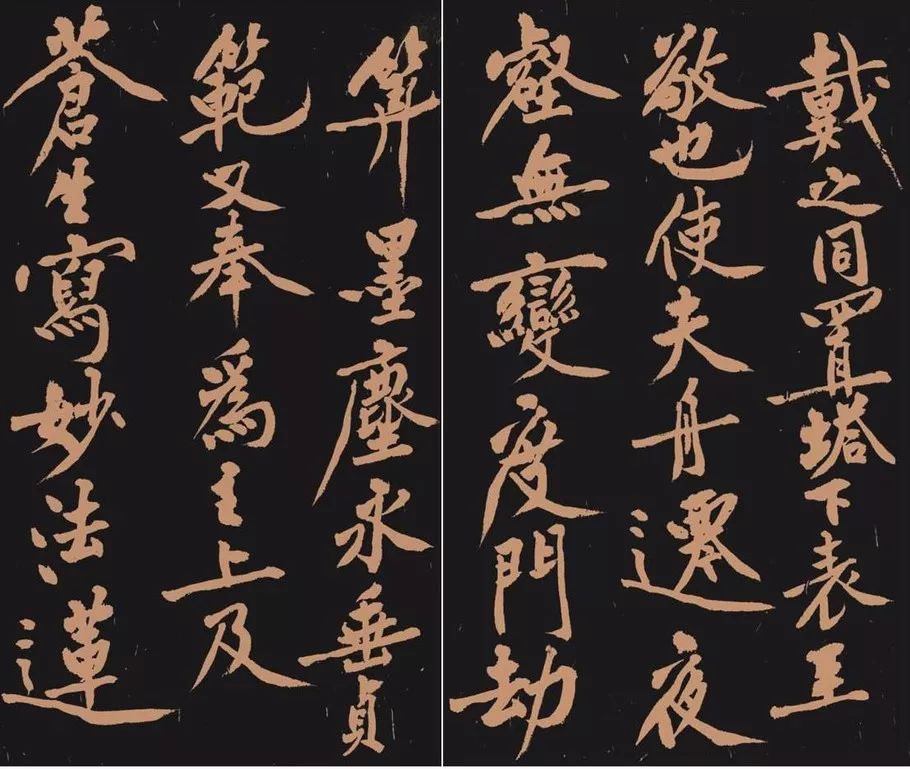 戴之同置塔下表至
敬也使夫舟遷夜
壑無變度門劫
筭墨塵永垂貞
範又奉為主上及
蒼生寫妙法蓮